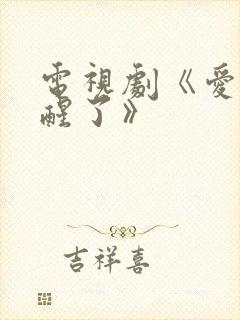 電視劇《愛
醒了》
吉祥喜